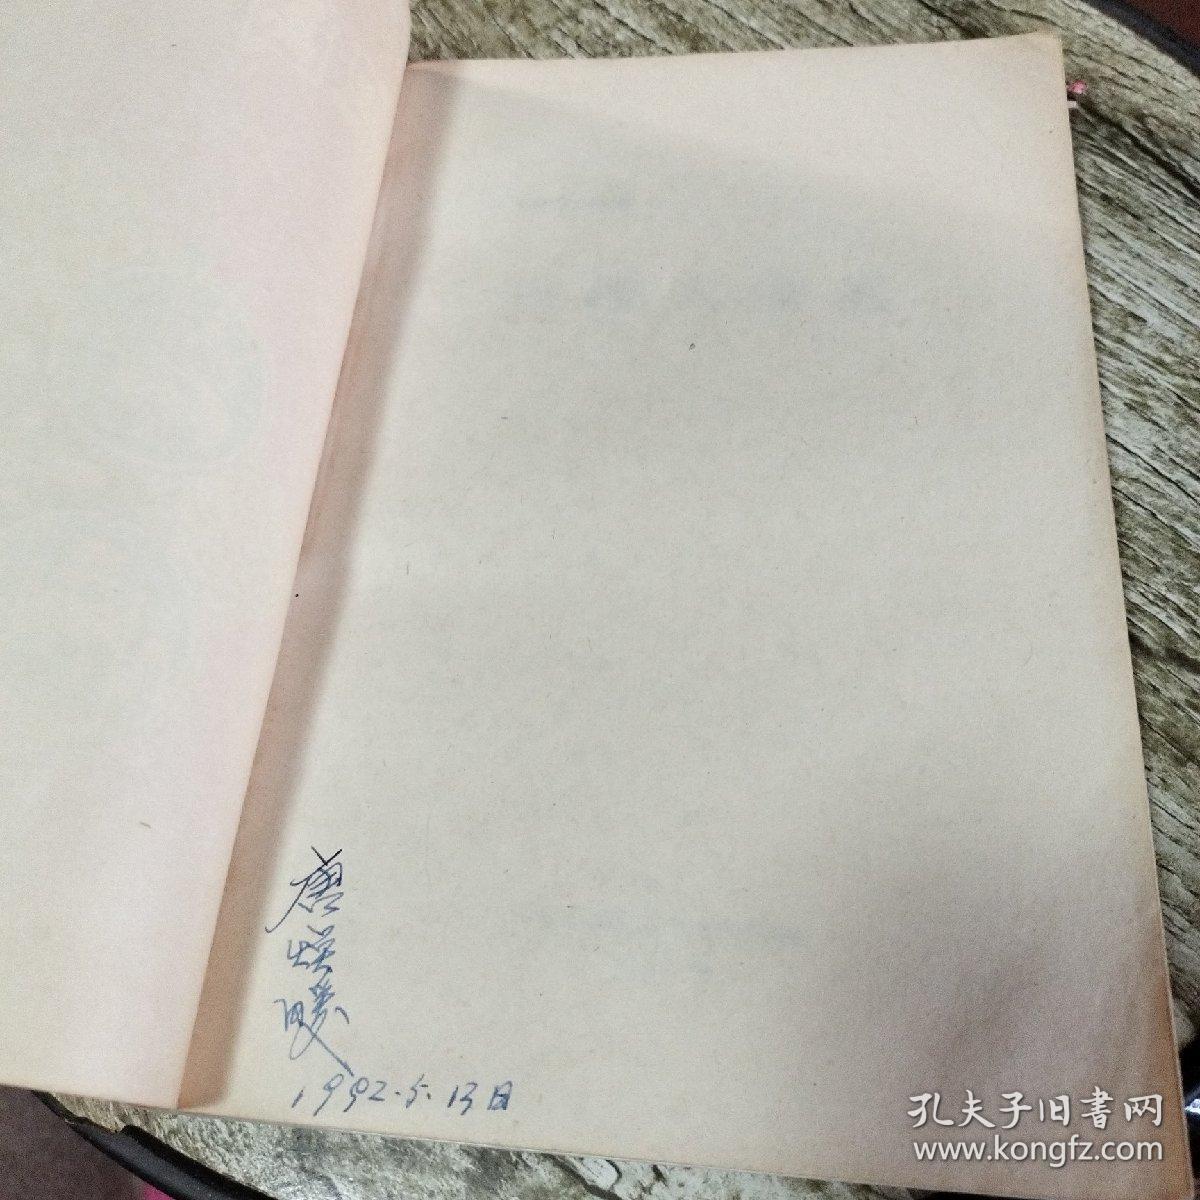 唐
暖
1992.5.13日
孔夫子旧書网
www.kongfz.com